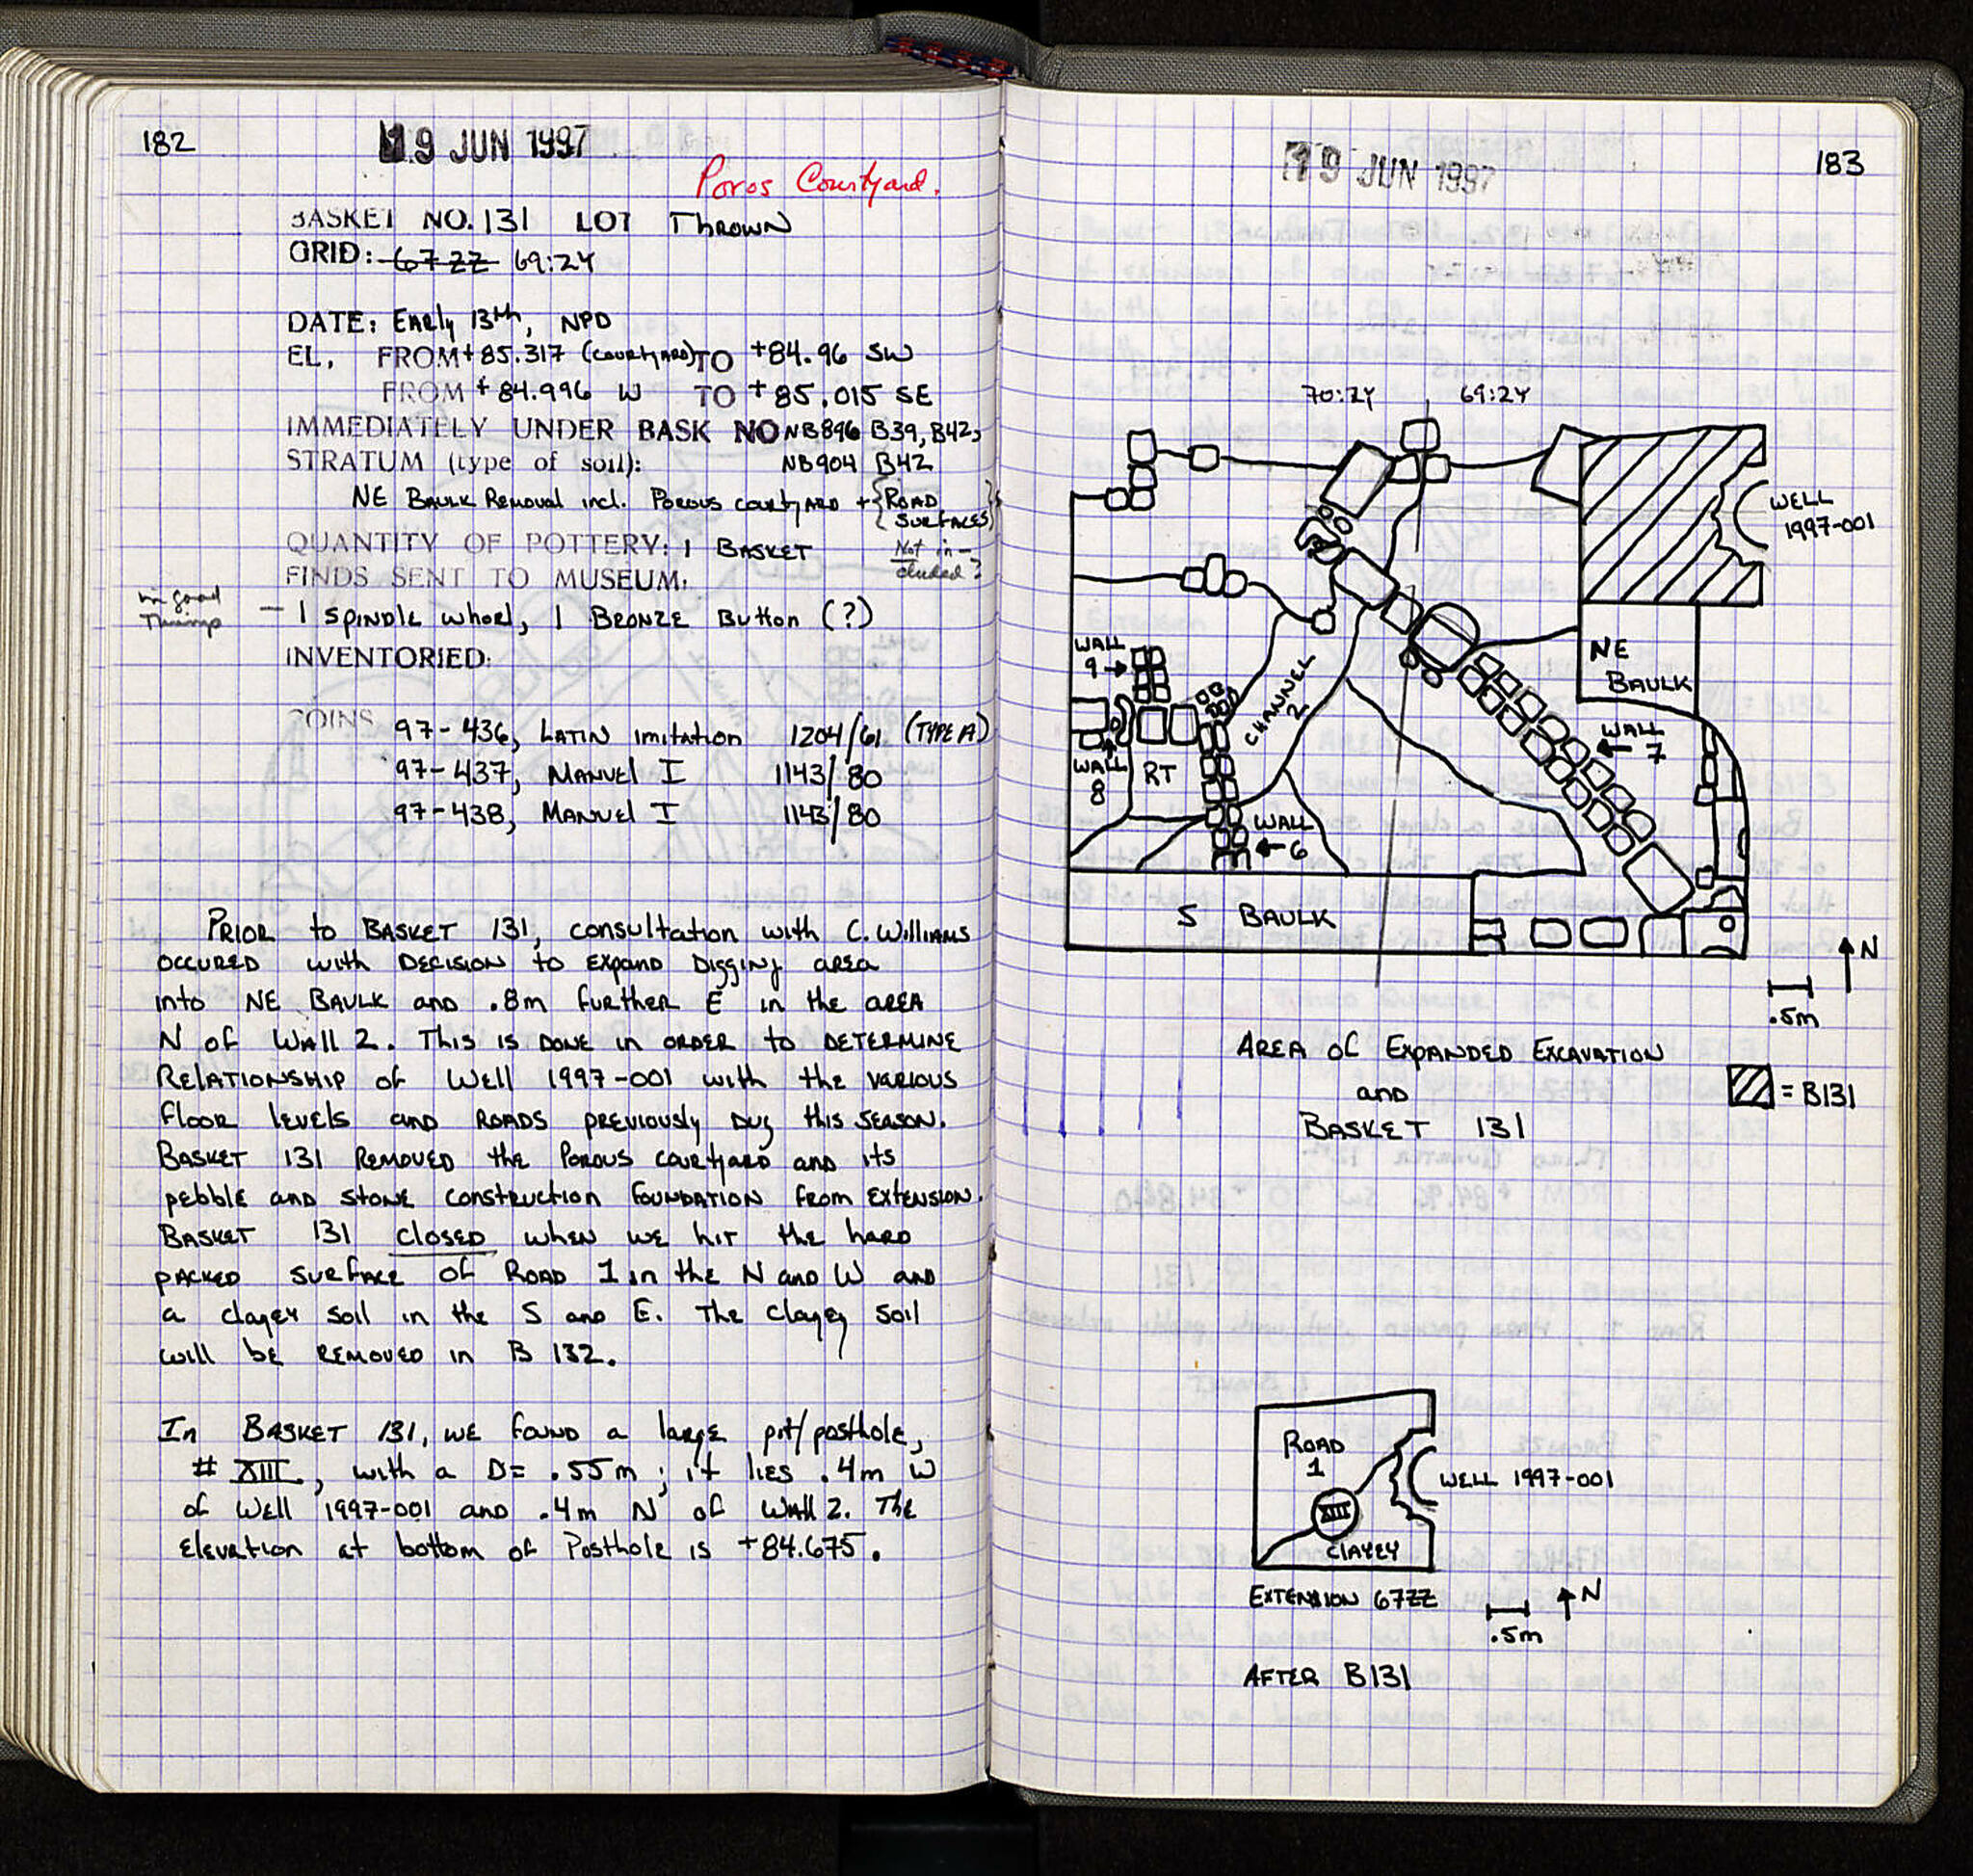 182
19 JUN 1997
Poros Courtyard.
BASKET NO. 131 LOT Thrown
GRID: 67ZZ 69:ZY
DATE: Early 13th, NPD
EL, FROM +85.317 (courtyard) TO +84.96 SW
FROM +84.996 W TO +85.015 SE
IMMEDIATELY UNDER BASK NO NB896 B39, B42,
STRATUM (type of soil): NB904 B42
NE Baulk Removal incl. Porous courtyard + {Road
surfaces}
QUANTITY OF POTTERY: 1 Basket
Not in-
cluded?
FINDS SENT TO MUSEUM:
— 1 spindle whorl, 1 Bronze Button (?)
INVENTORIED:
COINS 97-436, Latin imitation 1204/61 (Type A)
97-437, Manuel I 1143/80
97-438, Manuel I 1143/80
Prior to Basket 131, consultation with C. Williams
occured with decision to expand digging area
into NE Baulk and .8m further E in the area
N of Wall 2. This is done in order to determine
relationship of Well 1997-001 with the various
floor levels and roads previously dug this season.
Basket 131 removed the Porous courtyard and its
pebble and stone construction foundation from extension.
Basket 131 closed when we hit the hard
packed surface of Road 1 in the N and W and
a clayey soil in the S and E. The clayey soil
will be removed in B 132.
In Basket 131, we found a large pit/posthole,
# XIII, with a D= .55m; it lies .4m W
of Well 1997-001 and .4m N of Wall 2. The
elevation at bottom of Posthole is +84.675.
19 JUN 1997
183
70:ZY 69:ZY
WELL
1997-001
NE
BAULK
WALL
9
CHANNEL
2
WALL
7
WALL
8
RT
WALL
6
S BAULK
N
.5m
Area of Expanded Excavation
and
Basket 131
= B131
Road
1
WELL 1997-001
XIII
clayey
Extension 67ZZ
N
.5m
After B131